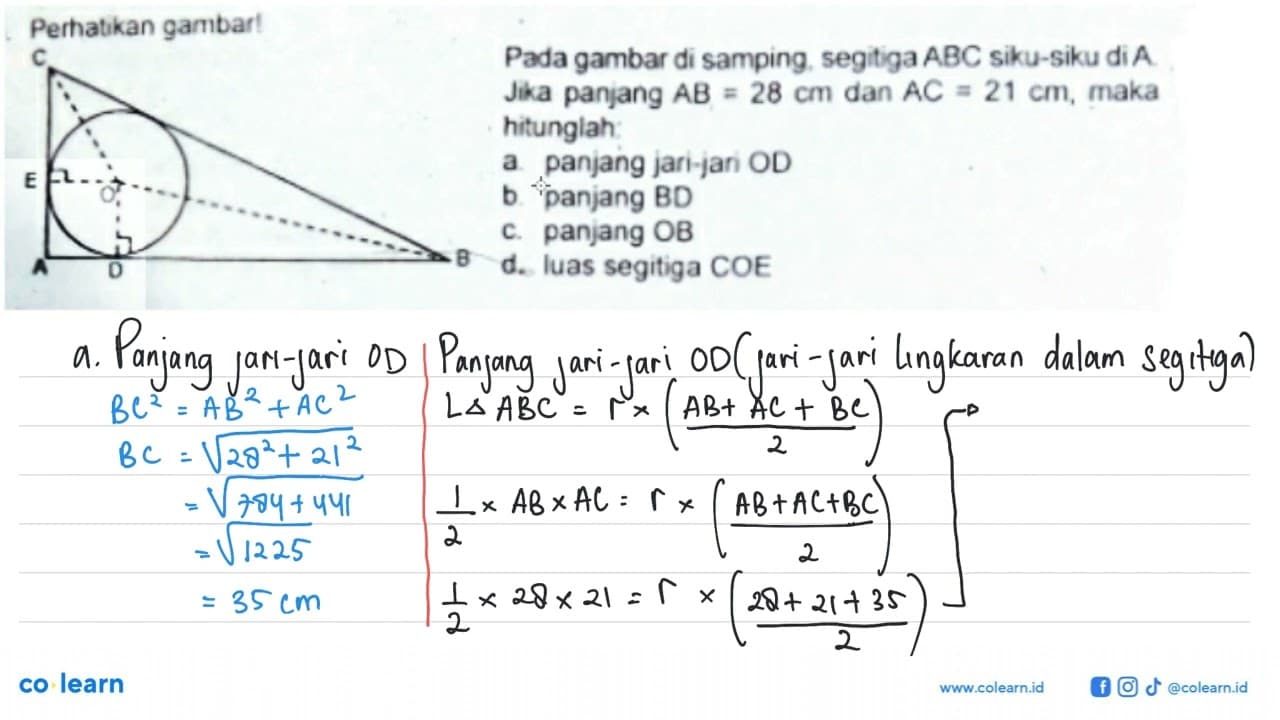 Perhatikan gambar!
C
E
O
A
D
B
Pada gambar di samping, segitiga ABC siku-siku di A.
Jika panjang AB = 28 cm dan AC = 21 cm, maka
hitunglah:
a. panjang jari-jari OD
b. panjang BD
c. panjang OB
d. luas segitiga COE
a. Panjang jari-jari OD
BC² = AB² + AC²
BC = √28² + 21²
= √784 + 441
= √1225
= 35 cm
Panjang jari-jari OD (jari-jari lingkaran dalam segitiga)
L∆ ABC = r × (AB + AC + BC / 2)
1/2 × AB × AC = r × (AB + AC + BC / 2)
1/2 × 28 × 21 = r × (28 + 21 + 35 / 2)
co learn
www.colearn.id
@colearn.id